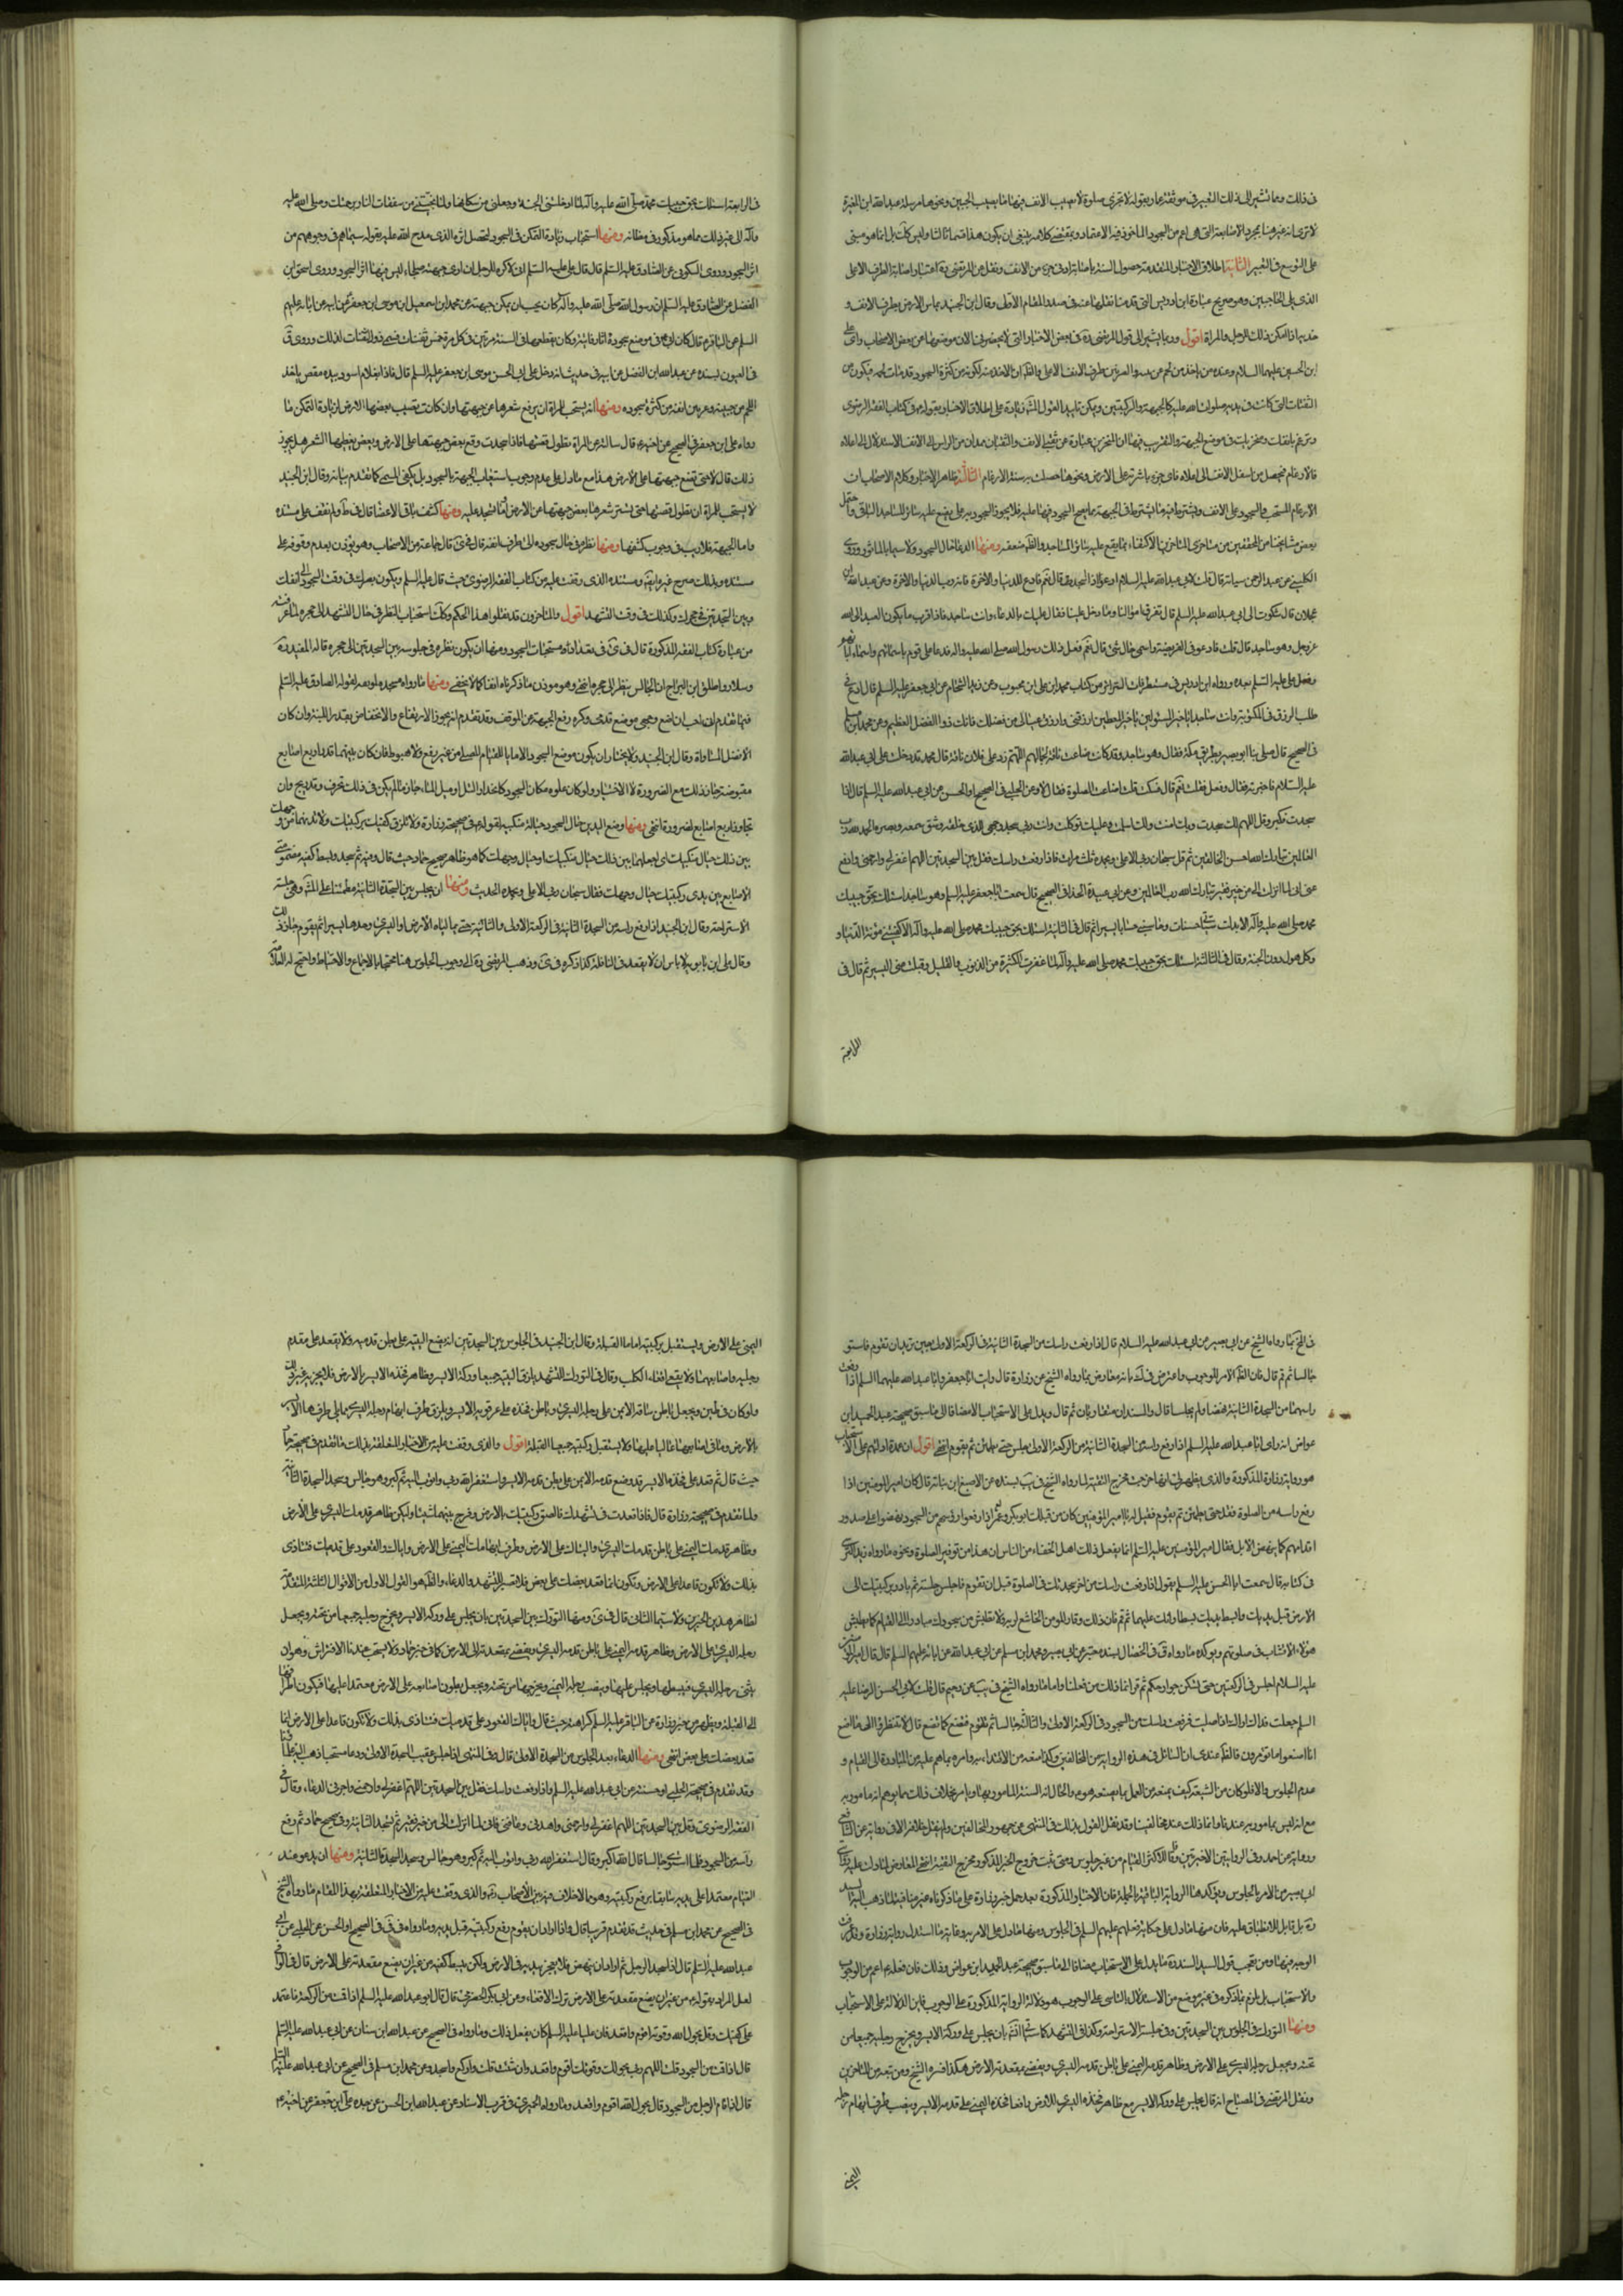 في ذلك وبما نشير الى ذلك التعبير في موثقة عمار بقوله لا تجزي صلوة لا يصيب الانف فيها ما يصيب الجبين ونحوها مرسلة عبد الله ابن المغيرة
على التوسع في التعبير الثانية اطلاق الاخبار المتقدمة حصول السنة باصابة اي جزء من الانف ونقل عن المرتضى ره اعتبار اصابة الطرف الاعلى
الذي يلي الحاجبين وهو صريح عبارة ابن ادريس التي قدمنا نقلها عنه في صدر المقام الاول وقال ابن الجنيد يماس الارض بطرف الانف و
خديه اذا امكن ذلك للرجل والمراة اقول وربما يشير الى قول المرتضى ره في بعض الاخبار التي لا يحضرني الان موضعها من بعض الاصحاب راى على
ابن الحسين عليهما السلام وعنده من ياخذ من لحم
الثفنات التي كانت في يديه صلوات الله عليه كالجبهة والركبتين ويمكن تاييد القول المشهور زيادة على اطلاق الاخبار بقوله في كتاب الفقه الرضوي
وترغم بانفك ومنخريك في موضع الجبهة
فالارغام يحصل من اسفل الانف الى اعلاه فاي جزء باشر به على الارض ونحوها حصلت به سنة الارغام الثالثة ظاهر الاخبار وكلام الاصحاب ان
الارغام المستحب والسجود على الانف ويشترط فيه ما يشترط في الجبهة مما يصح السجود فيها عليه فلا يجوز السجود به على ما يضع عليه سائر المساجد الباقية واحتمل
بعض مشايخنا من المحققين من متاخري المتاخرين الاكتفاء بما يقع عليه سائر المساجد والظاهر ضعفه ومنها الدعاء حال السجود ولا سيما بالماثور وروى
الكليني عن عبد الرحمن سيابة قال قلت لابي عبد الله عليه السلام ادعو وانا ساجد فقال نعم فادع للدنيا والاخرة فانه رب الدنيا والاخرة وعن عبد الله ابن
عجلان قال شكوت الى ابي عبد الله عليه السلام قال تفرق اموالنا وما دخل علينا فقال عليك بالدعاء وانت ساجد فاذا اقرب ما يكون العبد الى الله
عز وجل وهو ساجد قال قلت فادعو في الفريضة واسمي حاجتي قال نعم قد فعل ذلك رسول الله صلى الله عليه واله فدعا على قوم باسمائهم واسماء ابائهم
وفعل علي عليه السلام بعده ورواه ابن ادريس في مستطرفات السرائر من كتاب محمد ابن علي ابن محبوب وعن زيد الشحام عن ابي جعفر عليه السلم قال ادع في
طلب الرزق في المكتوبة وانت ساجد يا خير المسئولين ويا خير المعطين ارزقني وارزق عيالي من فضلك فانك ذو الفضل العظيم وعن محمد ابن مسلم
في الصحيح قال صلى بنا ابو بصير بطريق مكة فقال وهو ساجد وقد كانت ضاعت ناقة لجمالهم اللهم رد على فلان ناقته قال محمد فدخلت على ابي عبد الله
عليه السلام فاخبرته فقال وفعل فقلت نعم قال فسكت قلت افاعيد الصلوة فقال لا وعن الحلبي في الصحيح او الحسن عن ابي عبد الله عليه السلم قال اذا
سجدت فكبر وقل اللهم لك سجدت وبك امنت ولك اسلمت وعليك توكلت وانت ربي سجد وجهي للذي خلقه وشق سمعه وبصره الحمد لله رب
العالمين تبارك الله احسن الخالقين ثم قل سبحان ربي الاعلى وبحمده ثلث مرات فاذا رفعت راسك فقل بين السجدتين اللهم اغفر لي وارحمني وادفع
عني اني لما انزلت الي من خير فقير تبارك الله رب العالمين وعن ابي عبيدة الحذاء في الصحيح قال سمعت ابا جعفر عليه السلم وهو ساجد اسئلك بحق حبيبك
محمد صلى الله عليه واله الا بدلت سيئاتي حسنات وحاسبني حسابا يسيرا ثم قال في الثانية اسئلك بحق حبيبك محمد صلى الله عليه واله الا كفيتني مؤنة الدنيا و
وكل هول دون الجنة وقال في الثالثة اسئلك بحق حبيبك محمد صلى الله عليه واله لما غفرت لي الكثير من الذنوب والقليل وقبلت مني اليسير ثم قال في
الرابعة
في الرابعة اسئلك بحق حبيبك محمد صلى الله عليه واله لما ادخلتني الجنة وجعلتني من سكانها ولما نجيتني من سفعات النار برحمتك وصلى الله عليه
واله الى غير ذلك مما هو مذكور في مظانه ومنها استحباب زيادة التمكن في السجود لتحصيل اثره الذي مدح الله عليه بقوله سيماهم في وجوههم من
اثر السجود وروى السكوني عن الصادق عليه السلم قال قال علي عليه السلم اني لاكره للرجل ان ارى جبهته جلحاء ليس فيها اثر السجود وروى اسحق ابن
الفضل عن الصادق عليه السلم ان رسول الله صلى الله عليه واله كان يحب ان يمكن جبهته عن محمد ابن اسمعيل ابن موسى ابن جعفر عن ابيه عن ابائه عليهم
السلم عن الباقر ع قال كان ابي في موضع سجوده اثار ناتئة وكان يقطعها في السنة مرتين في كل مرة خمس ثفنات فسمي ذو الثفنات لذلك وروى في
في العيون بسنده عن عبد الله ابن الفضل عن ابيه في حديث انه دخل على ابي الحسن موسى ابن جعفر عليه السلم قال فاذا بغلام اسود بيده مقص ياخذ
اللحم من جبينه وعرنين انفه من كثرة سجوده ومنها انه يستحب للمراة ان ترفع شعرها عن جبهتها وان كانت يصيب بعضها الارض لزيادة التمكن لما
رواه علي ابن جعفر في الصحيح عن اخيه ع قال سالته عن المراة تطول قصتها فاذا سجدت وقع بعض جبهتها على الارض وبعض يغطيها الشعر هل يجوز
ذلك قال لا حتى تضع جبهتها على الارض هذا مع ما دل على عدم وجوب استيعاب الجبهة بالسجود بل يكفي المسمى كما تقدم بيانه وقال ابن الجنيد
لا يستحب للمراة ان تطول قصتها حتى يستر شعرها بعض جبهتها عن الارض او ما تسجد عليه ومنها كشف باقي الاعضاء قال في ولم نقف على مستنده
واما الجبهة فلا ريب في وجوب كشفها ومنها نظره في حال سجوده الى طرف انفه قال في قال جماعة من الاصحاب وهو يؤذن بعدم وقوفه على
مستنده وبذلك صرح غيره ايضا ومستنده الذي وقفت عليه من كتاب الفقه الرضوي حيث قال عليه السلم ويكون بصرك في وقت السجود الى انفك
وبين السجدتين في حجرك وكذلك في وقت التشهد اقول والمتاخرون قد نقلوا هذا الحكم وكذلك استحباب النظر في حال التشهد الى حجره لما عرفت
من عبارة كتاب الفقه المذكورة
وسلار واطلق ابن البراج ان الجالس ينظر الى حجره انتهى وهو مؤذن بما ذكرناه انفا كما لا يخفى ومنها مساواة مسجده لموقفه لقوله الصادق عليه السلم
فيما تقدم اني احب ان اضع وجهي موضع قدمي وكره رفع الجبهة عن الموقف وقد تقدم انه يجوز الارتفاع والانخفاض بقدر اللبنة وان كان
الافضل المساواة وقال ابن الجنيد ولا يختار ان يكون موضع السجود الا مساويا للمقام المصلي من غير رفع ولا هبوط فان كان بينهما قدر اربع اصابع
مقبوضة جاز ذلك مع الضرورة لا الاختيار ولو كان علوه مكان السجود كانحدار التل او ميل الماء جاز ما لم يكن في ذلك تحرف وتدريج وان
تجاوز اربع اصابع لضرورة انتهى ومنها وضع اليدين حيال السجود حيالة منكبيه لقوله ع في صحيحة زرارة ولا تلزق كفيك بركبتيك ولا تدنهما من وجهك
بين ذلك حيال منكبيك اي اجعلهما بين ذلك حيال منكبيك او حيال وجهك كما هو ظاهر صحيح حماد حيث قال وفيه ثم سجد وبسط كفيه مضمومتي
الاصابع بين يدي ركبتيه حيال وجهه فقال سبحان ربي الاعلى وبحمده الحديث ومنها ان يجلس بين السجدة الثانية مطمئنا على المشهور وهي جلسة
الاستراحة وقال ابن الجنيد اذا رفع راسه من السجدة الثانية في الركعة الاولى والثالثة حتى يماس الياه الارض او اليسرى وحدها يسيرا ثم يقوم جاز ذلك
وقال علي ابن بابويه لا باس ان لا يقعد في النافلة كذا ذكره في وذهب المرتضى ره الى وجوب الجلوس هنا محتجا بالاجماع والاحتياط واحتج له العلامة
بما رواه الشيخ عن ابي بصير عن ابي عبد الله عليه السلام قال اذا رفعت راسك من السجدة الثانية في الركعة الاولى حين تريد ان تقوم فاستو
جالسا ثم قم قال فان الظاهر الامر للوجوب واعترض في بانه معارض بما رواه الشيخ عن زرارة قال رايت ابا جعفر وابا عبد الله عليهما السلم اذا رفعت
راسهما من السجدة الثانية نهضا ولم يجلسا قال والسندان متقاربان ثم قال ويدل على الاستحباب الامضا قال ما سبق صحيحة عبد الحميد ابن
عواض انه راى ابا عبد الله عليه السلم اذا رفع راسه من السجدة الثانية من الركعة الاولى جلس حتى يطمئن ثم يقوم انتهى اقول ان عمدة ادلتهم على الاستحباب
هو رواية زرارة المذكورة والذي يظهر لي انها خرجت مخرج التقية لما رواه الشيخ في بسنده عن الاصبغ ابن نباتة قال كان امير المؤمنين اذا
رفع راسه من الصلوة قعد حتى يطمئن ثم يقوم فقيل له يا امير المؤمنين كان من قبلك ابو بكر وعمر اذا رفعوا رؤسهم من السجود نهضوا على صدور
اقدامهم كما ينهض الابل فقال امير المؤمنين عليه السلم انما يفعل ذلك اهل الجفاء من الناس ان هذا من توقير الصلوة ونحوه ما رواه زيد النرسي
في كتابه قال سمعت ابا الحسن عليه السلم يقول اذا رفعت راسك من اخر سجدتك في الصلوة قبل ان تقوم فاجلس جلسة ثم بادر بركبتيك الى
الارض قبل يديك وابسط يديك بسطا واتك عليهما ثم قم فان ذلك وقار المؤمن الخاشع لربه ولا تطيش من سجودك مبادرا الى القيام كما يطيش
هؤلاء الاقشاب في صلوتهم ويؤكده ما رواه في الخصال بسنده عن ابي بصير ومحمد ابن مسلم عن ابي عبد الله عن ابائه عليهم السلم قال قال امير المؤمنين
عليه السلام اجلسوا في الركعتين حتى تسكن جوارحكم ثم قوموا فان ذلك من فعلنا واما ما رواه الشيخ في عن رحيم قال قلت لابي الحسن الرضا عليه
السلم جعلت فداك اراك اذا صليت فرفعت راسك من السجود في الركعة الاولى والثالثة تستوي جالسا ثم تقوم فنصنع كما تصنع قال لا تنظروا الى ما اصنع
انا اصنعوا ما تؤمرون فالظاهر عندي ان السائل في هذه الرواية من المخالفين
عدم الجلوس والا فلو كان من الشيعة كيف يمنعه من العمل بما يصنعه هو ع والحال انه السنة المامور بها
مع انه ليس بمامور به عندنا وانما ذلك عند مخالفينا وقد نقل القول بذلك في المنتهى عن جمهور المخالفين ولم ينقل خلافه الا في رواية عن الشافعي
ورواية عن احمد وفي الروايتين الاخيرتين وفاقا للاكثر القيام من غير جلوس ومتى ثبت خروج الخبر المذكور مخرج التقية انتفى المعارض لما دل عليه رواية
ابي بصير من الامر بالجلوس ويؤكدها الرواية الباقية بالجملة فان الاخبار المذكورة بعد حمل خبر زرارة على ما ذكرناه غير منافية لما ذهب اليه السيد
الوجيه فيها ومن تعجب قول السيد السند ره ما يدل على الاستحباب مضافا الى ما سبق صحيحة عبد الحميد ابن عواض وذلك فان فعله ع اعم من الوجوب
والاستحباب بل يلزم بما ذكره في غير موضع من الاستدلال بالتاسي على الوجوب هو دلالة الرواية المذكورة على الوجوب فاين الدلالة على الاستحباب
ومنها التورك في الجلوس بين السجدتين وفي جلسة الاستراحة وكذا في التشهد كما سياتي ان شاء الله بان يجلس على وركه الايسر ويخرج رجليه جميعا من
تحته ويجعل رجله اليسرى على الارض وظاهر قدمه اليمنى على باطن قدمه اليسرى ويفضي بمقعدته الارض هكذا فسره الشيخ ومن تبعه من المتاخرين
ونقل المرتضى في المصباح انه قال يجلس على وركه الايسر مع ظاهر فخذه اليسرى للارض رافعا فخذه اليمنى على قدمه الايسر وينصب طرف ابهام رجله
اليمنى
اليمنى على الارض ويستقبل بركبتيه امام القبلة وقال ابن الجنيد في الجلوس بين السجدتين انه يضع اليتيه على بطن قدميه ولا يقعد على مقدم
رجليه واصابعهما ولا يقعي اقعاء الكلب وقال في التورك للتشهد يلزق اليتيه جميعا ووركه الايسر وظاهر فخذه الايسر بالارض فلا يجزيه غير ذلك
ولو كان في طين ويجعل باطن ساقه الايمن على رجله اليسرى وباطن فخذه على عرقوبه الايسر ويلزق طرف ابهام رجله اليسرى مما يلي طرفها الايسر
بالارض وباقي اصابعها عاليا عليها فلا يستقبل ركبتيه جميعا القبلة اقول والذي وقفت عليه من الاخبار المتعلقة بذلك ما تقدم في صحيحة حماد
حيث قال ثم قعد على فخذه الايسر قد وضع قدمه الايمن على بطن قدمه الايسر واستغفر الله ربي واتوب اليه ثم كبر وهو جالس وسجد السجدة الثانية
وما تقدم في صحيحة زرارة قال فاذا قعدت في تشهدك فالصق ركبتيك بالارض وفرج بينهما شيئا وليكن ظاهر قدمك اليسرى على الارض
وظاهر قدمك اليمنى على باطن قدمك اليسرى والياك على الارض وطرف ابهامك اليمنى على الارض واياك والقعود على قدميك فتتاذى
بذلك ولا تكون قاعدا على الارض وتكون انما قعد بعضك على بعض فلا تصبر للتشهد والدعاء والظاهر هو القول الاول من الاقوال الثلثة المتقدمة
لظاهر هذين الخبرين ولا سيما الثاني قال في ومنها التورك بين السجدتين بان يجلس على وركه الايسر ويخرج رجليه جميعا من تحته ويجعل
رجله اليسرى على الارض وظاهر قدمه اليمنى على باطن قدمه اليسرى ويفضي بمقعدته الى الارض كما في خبر حماد ولا يستحب عندنا الافتراش وهو ان
يثني رجله اليسرى فيبسطها ويجلس عليها وينصب رجله اليمنى ويخرجها من تحته ويجعل بطون اصابعه على الارض معتمدا عليها فيكون اطرافها
الى القبلة ويظهر من خبر زرارة عن الباقر عليه السلم كراهته حيث قال واياك القعود على قدميك فتتاذى بذلك ولا تكون قاعدا على الارض انما
قعد بعضك على بعض انتهى ومنها الدعاء بعد الجلوس من السجدة الاولى قال في المنتهى اذا جلس عقيب السجدة الاولى ودعا مستحبا ذهب اليه علماؤنا
وقد تقدم في صحيحة الحلبي او حسنته عن ابي عبد الله عليه السلم واذا رفعت راسك فقل بين السجدتين اللهم اغفر لي وارحمني واجرني الدعاء وقال في
الفقه الرضوي وقل بين السجدتين اللهم اغفر لي وارحمني واهدني وعافني فاني لما انزلت الي من خير فقير ثم تسجد الثانية وفي صحيح حماد ثم رفع
راسه من السجود فلما استوى جالسا قال الله اكبر وقال استغفر الله ربي واتوب اليه ثم كبر وهو جالس وسجد السجدة الثانية ومنها ان يدعو عند
القيام معتمدا على يديه سابقا برفع ركبتيه وهو مما لا خلاف فيه بين الاصحاب ره والذي وقفت عليه من الاخبار المتعلقة بهذا المقام ما رواه الشيخ
في الصحيح عن محمد ابن مسلم في حديث قد تقدم قريبا قال واذا اراد ان يقوم رفع ركبتيه قبل يديه وما رواه في في الصحيح او الحسن عن الحلبي عن ابي
عبد الله عليه السلم قال اذا سجد الرجل ثم اراد ان ينهض فلا يعجز بيديه في الارض ولكن يبسط كفيه من غير ان يضع مقعدته على الارض قال في الوافي
لعل المراد بقوله ع من غير ان يضع مقعدته على الارض ترك الاقعاء وعن ابي بكر الحضرمي قال قال ابو عبد الله عليه السلم اذا قمت من الركعة فاعتمد
على كفيك وقل بحول الله وقوته اقوم واقعد فان عليا عليه السلم كان يفعل ذلك وما رواه في الصحيح عن عبد الله ابن سنان عن ابي عبد الله عليه السلم
قال اذا قمت من السجود قلت اللهم ربي بحولك وقوتك اقوم واقعد وان شئت قلت واركع واسجد وعن محمد ابن مسلم في الصحيح عن ابي عبد الله عليه السلم
قال اذا قام الرجل من السجود قال بحول الله اقوم واقعد وما رواه الحميري في قرب الاسناد عن عبد الله ابن الحسن عن جده علي ابن جعفر عن اخيه ع